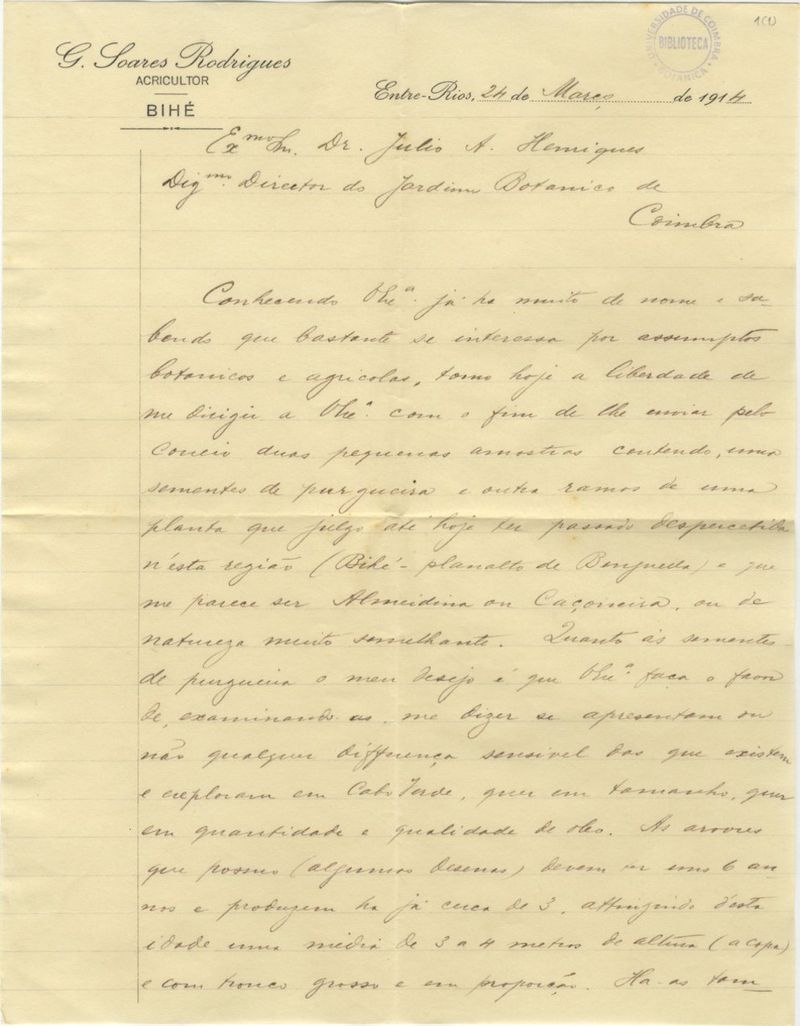 1(1)
UNIVERSIDADE DE COIMBRA
BIBLIOTECA
BOTANICA
G. Soares Rodrigues
AGRICULTOR
BIHÉ
Entre-Rios, 24 de Março de 1914
Exmo Snr. Dr. Julio A. Henriques
Digmo. Director do Jardim Botanico de
Coimbra
Conhecendo Vhcª. já ha muito de nome e sa-
bendo que bastante se interessa por assumptos
botanicos e agricolas, tomo hoje a liberdade de
me dirigir a Vhcª. com o fim de lhe enviar pelo
correio duas pequenas amostras contendo, uma
sementes de purgueira e outra ramos de uma
planta que julgo até hoje ter passado despercebida
n'esta região (Bihé - planalto de Benguela) e que
me parece ser Almeidina ou Caçoneira, ou de
natureza muito semelhante. Quanto ás sementes
de purgueira o meu desejo é que Vhcª faça o favor
de, examinando-as, me dizer se apresentam ou
não qualquer differença sensivel das que existem
e exploram em Cabo Verde, quer em tamanho, quer
em quantidade e qualidade de oleo. As arvores
que possuo (algumas desenas) devem ter uns 6 an-
nos e produzem ha já cerca de 3, attingindo d'esta
idade uma média de 3 a 4 metros de altura (a copa)
e com tronco grosso e em proporção. Ha-as tam-